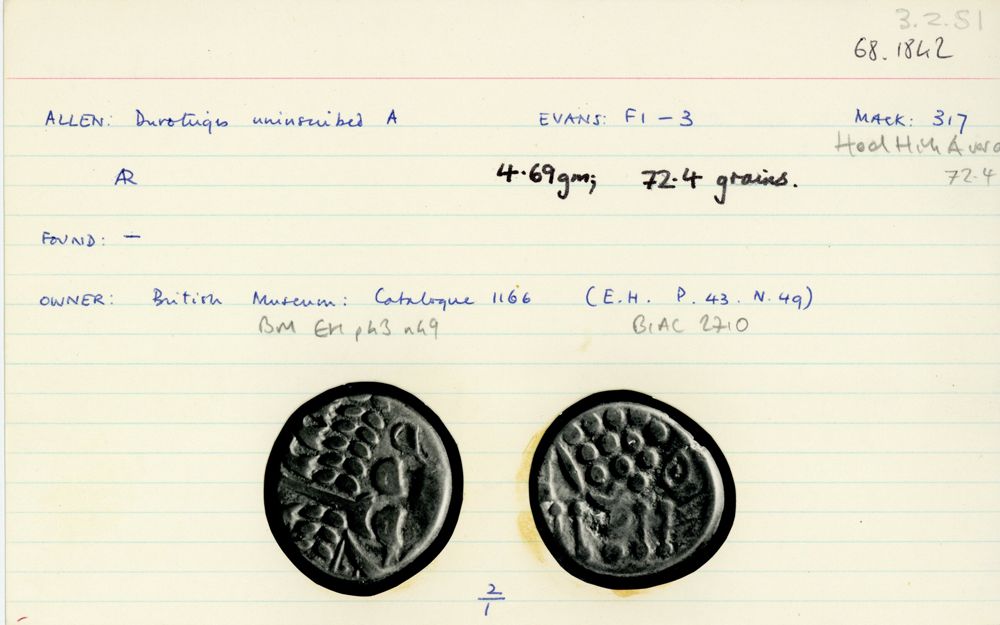 3.2.51
68.1842
ALLEN: Durotriges uninscribed A EVANS: F1-3 MACK: 317
AR 4.69gm; 72.4 grains. 72.4
FOUND: —
OWNER: British Museum: Catalogue 1166 (E.H. P.43. N.49)
BM EH p43 n49 BIAC 2710
2
1